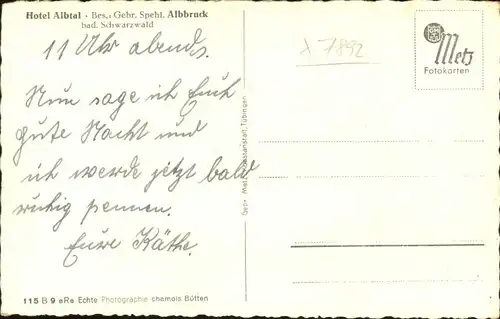 Hotel Albtal - Bes.: Gebr. Speht, Albbruck
bad. Schwarzwald
11 Uhr abends.
Nun sage ich Euch
gute Nacht und
ich werde jetzt bald
ruhig pennen.
Eure Käthe.
115 B 9 eRe Echte Photographie chamois Bütten
Gebr. Metz, Tübingen
x 7892
Metz
Fotokarten